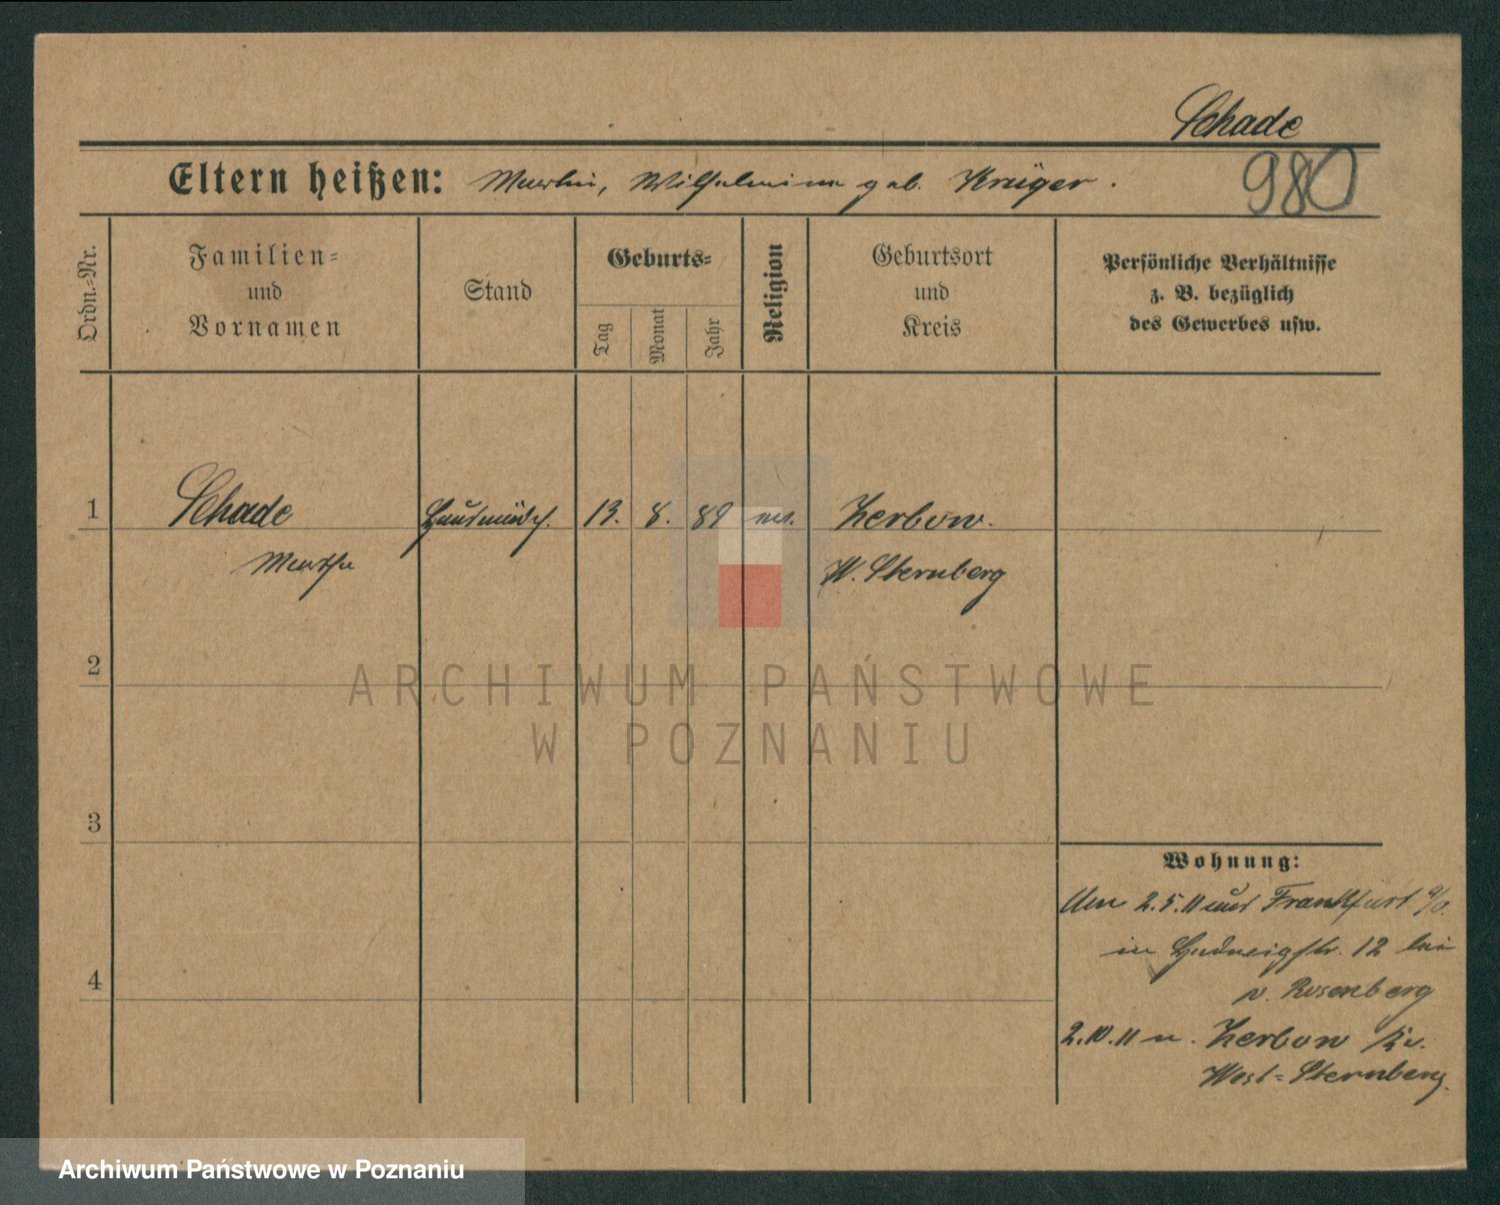 Schade
Eltern heißen: Martin, Wilhelmine geb. Krüger.
980
Ordn.-Nr.
Familien-
und
Vornamen
Stand
Geburts-
Tag
Monat
Jahr
Religion
Geburtsort
und
Kreis
Persönliche Verhältnisse
z. B. bezüglich
des Gewerbes usw.
1
Schade
Hausmädch.
13.
8.
89
ev.
Zerbow.
Martha
W. Sternberg
ARCHIWUM PAŃSTWOWE
W POZNANIU
2
3
4
Wohnung:
Am 2.5.11 aus Frankfurt a/O.
in Hedwigstr. 12 bei
v. Rosenberg
2.10.11 n. Zerbow Kr.
West-Sternberg.
Archiwum Państwowe w Poznaniu